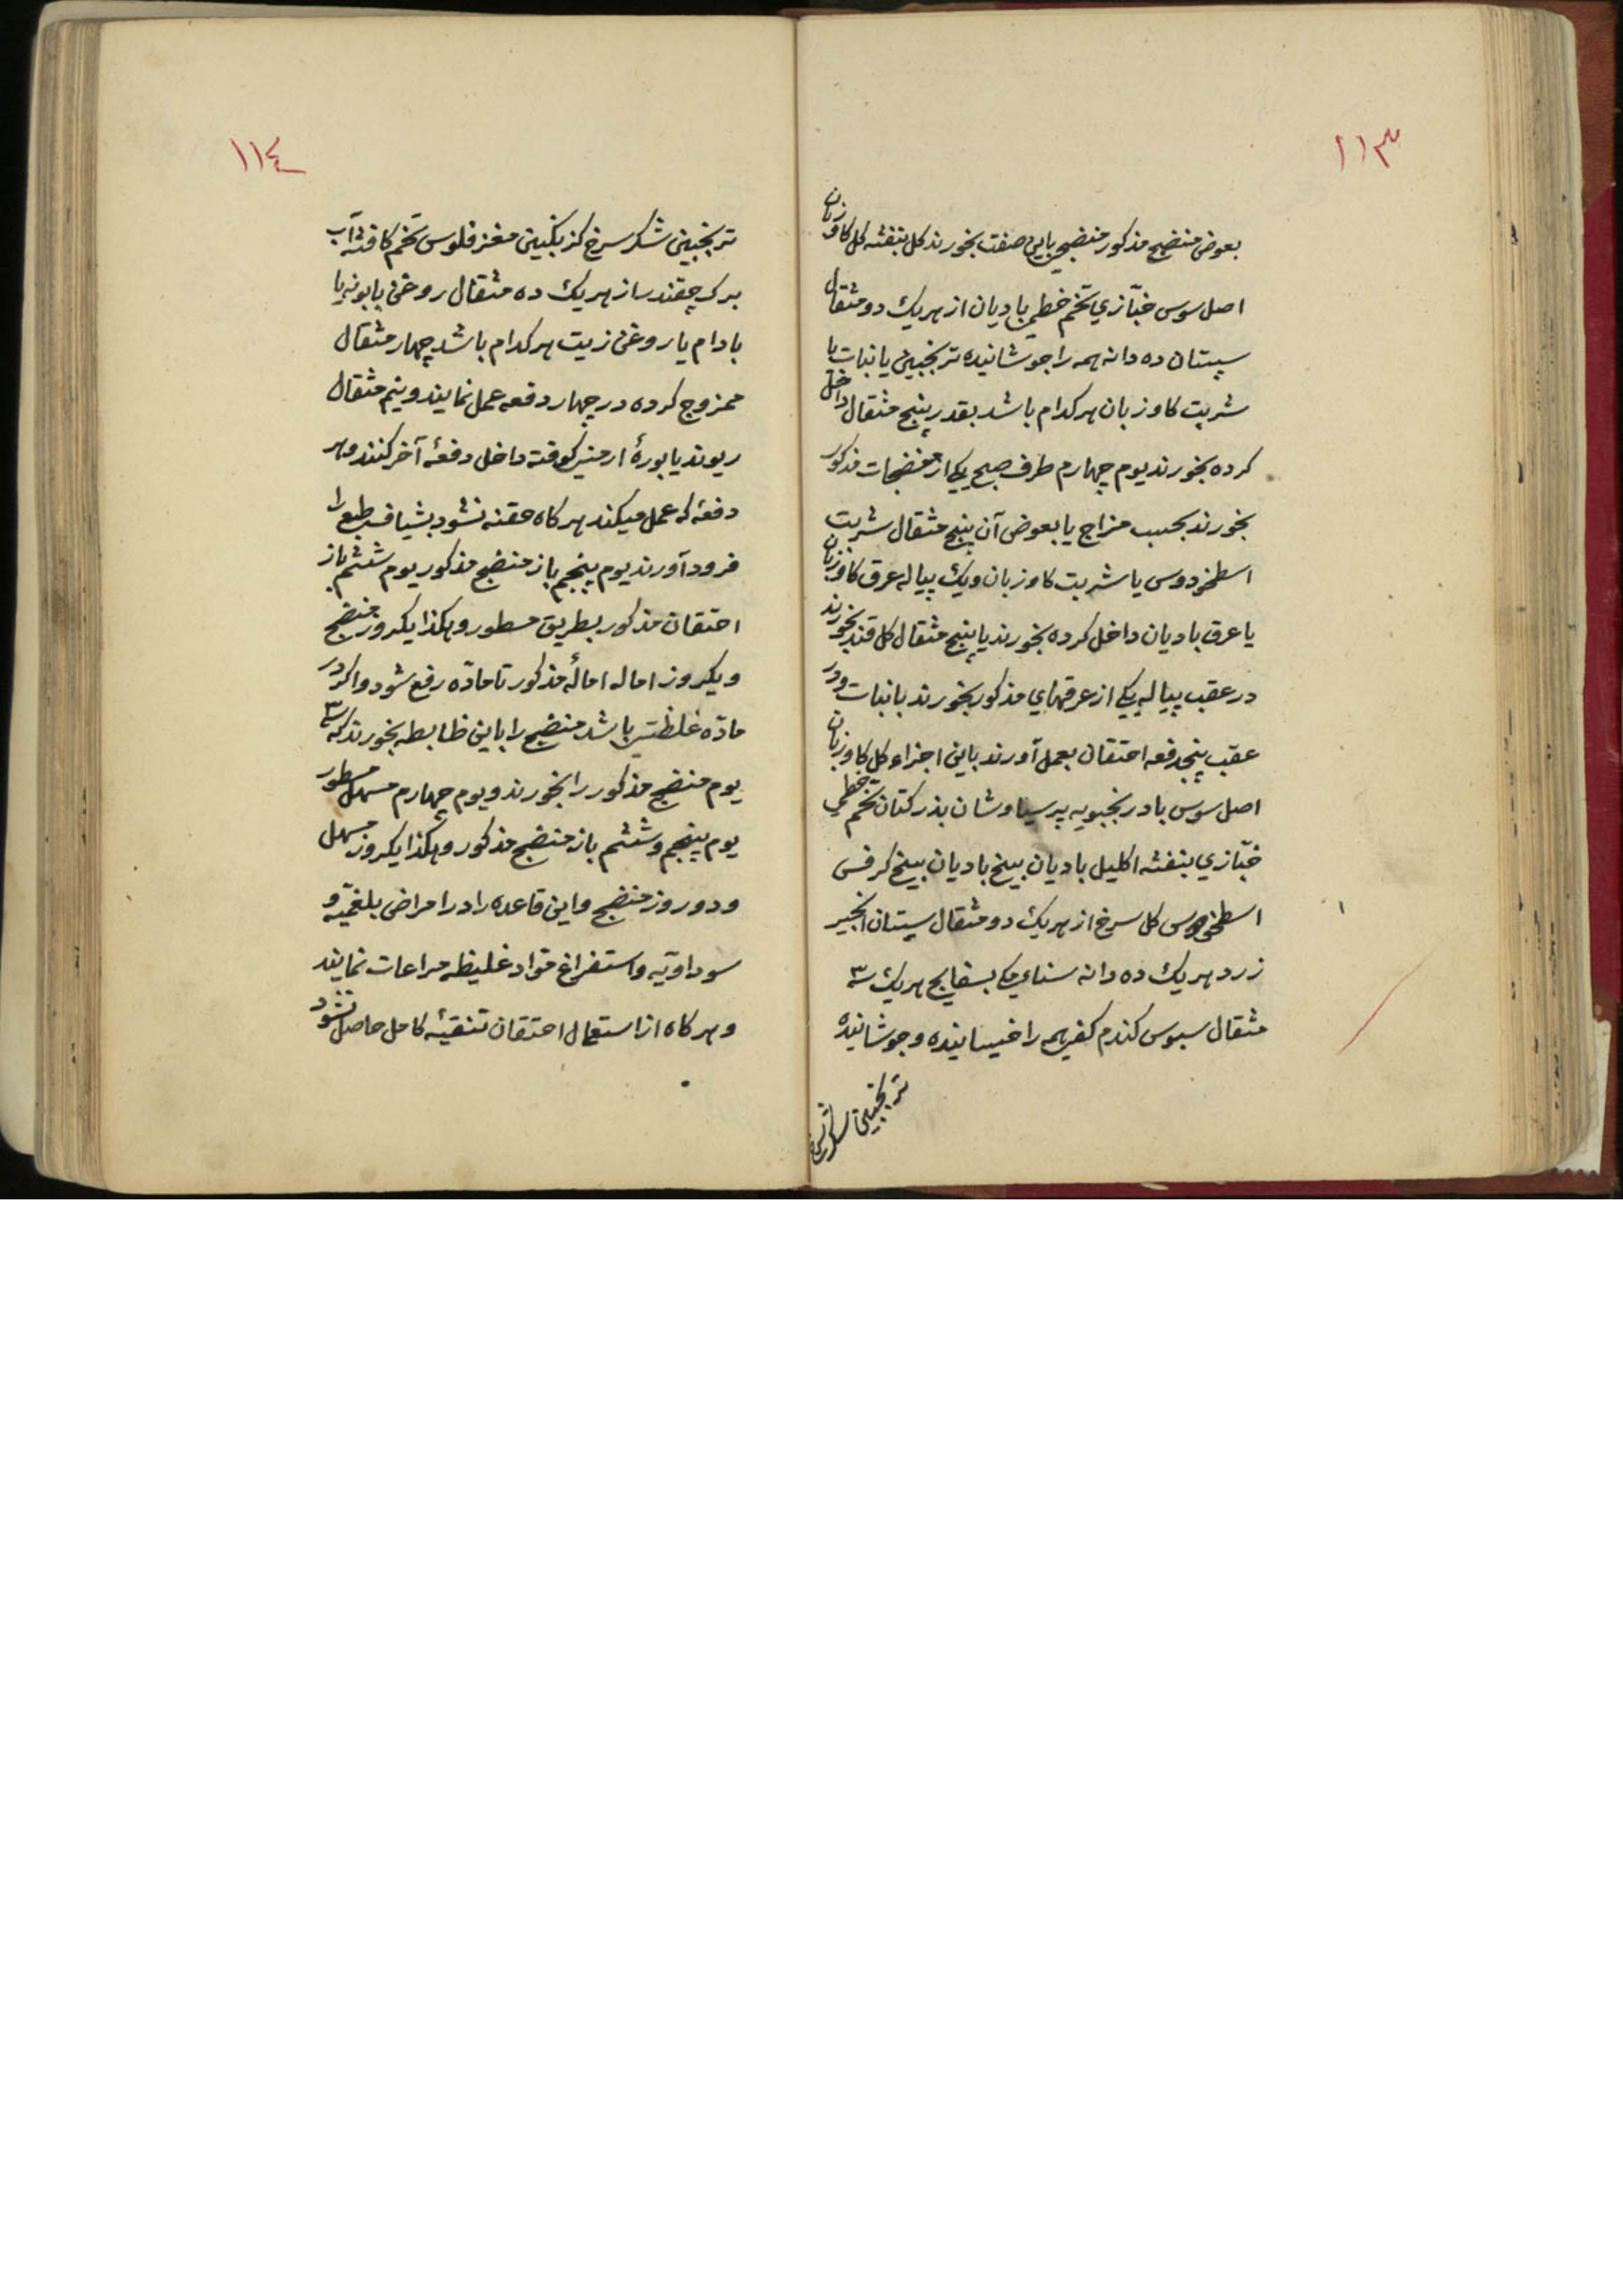 ١١٣
بعوض منضج مذکور منضجی باین صفت بخورند کل بنفشه کل کاوزبان
اصل سوس خبّازي تخم خطمی بادیان از هریک دو مثقال
سپستان ده دانه همه را جوشانیده ترنجبین یا نبات یا
شربت کاوزبان هرکدام باشد بقدر پنج مثقال داخل
کرده بخورند یوم چهارم طرف صبح یکی از منضجات مذکور
بخورند بحسب مزاج یا بعوض آن پنج مثقال شربت
اسطخودوس یا شربت کاوزبان ویک پیاله عرق کاوزبان
یا عرق بادیان داخل کرده بخورند یا پنج مثقال کل قند بخورند
در عقب پیاله یکی از عرقهاي مذکور بخورند با نبات ودر
عقب پنجدفعه احتقان بعمل آورند باین اجزاء کل کاوزبان
اصل سوس بادرنجبویه پرسیاوشان بذرکتان تخم خطمي
خبّازي بنفشه اکلیل بادیان بیخ بادیان بیخ کرفس
اسطخودوس کل سرخ از هریک دو مثقال سپستان انجیر
زرد هریک ده دانه سناي مکی بسفایج هریک سه
مثقال سبوس کندم کفی همه را خیسانیده وجوشانیده
ترنجبین شکر سرخ
١١٤
ترنجبین شکر سرخ کزنکبین مغز فلوس تخم کافشه آب
برک چقندر از هریک ده مثقال روغن بابونه یا
بادام یا روغن زیت هرکدام باشد چهار مثقال
ممزوج کرده در چهار دفعه عمل نمایند ونیم مثقال
ریوند یا بورۀ ارمنی کوفته داخل دفعۀ آخر کنند وهر
دفعه که عمل میکند هرکاه حقنه نشود بشیاف طبع را
فرود آورند یوم پنجم باز منضج مذکور یوم ششم باز
احتقان مذکور بطریق مسطور وهکذا یکروز منضج
ویکروز اماله امالۀ مذکور تا مادّه رفع شود واکر در
مادّه غلظتی باشد منضج را باین ظابطه بخورند که سه
یوم منضج مذکور را بخورند ویوم چهارم مسهل مسطور
یوم پنجم وششم باز منضج مذکور وهکذا یکروز مسهل
ودو روز منضج واین قاعده را در امراض بلغمیّه و
سوداویّه واستفراغ موّاد غلیظه مراعات نمایند
وهرکاه از استعمال احتقان تنقیۀ کامل حاصل نشود